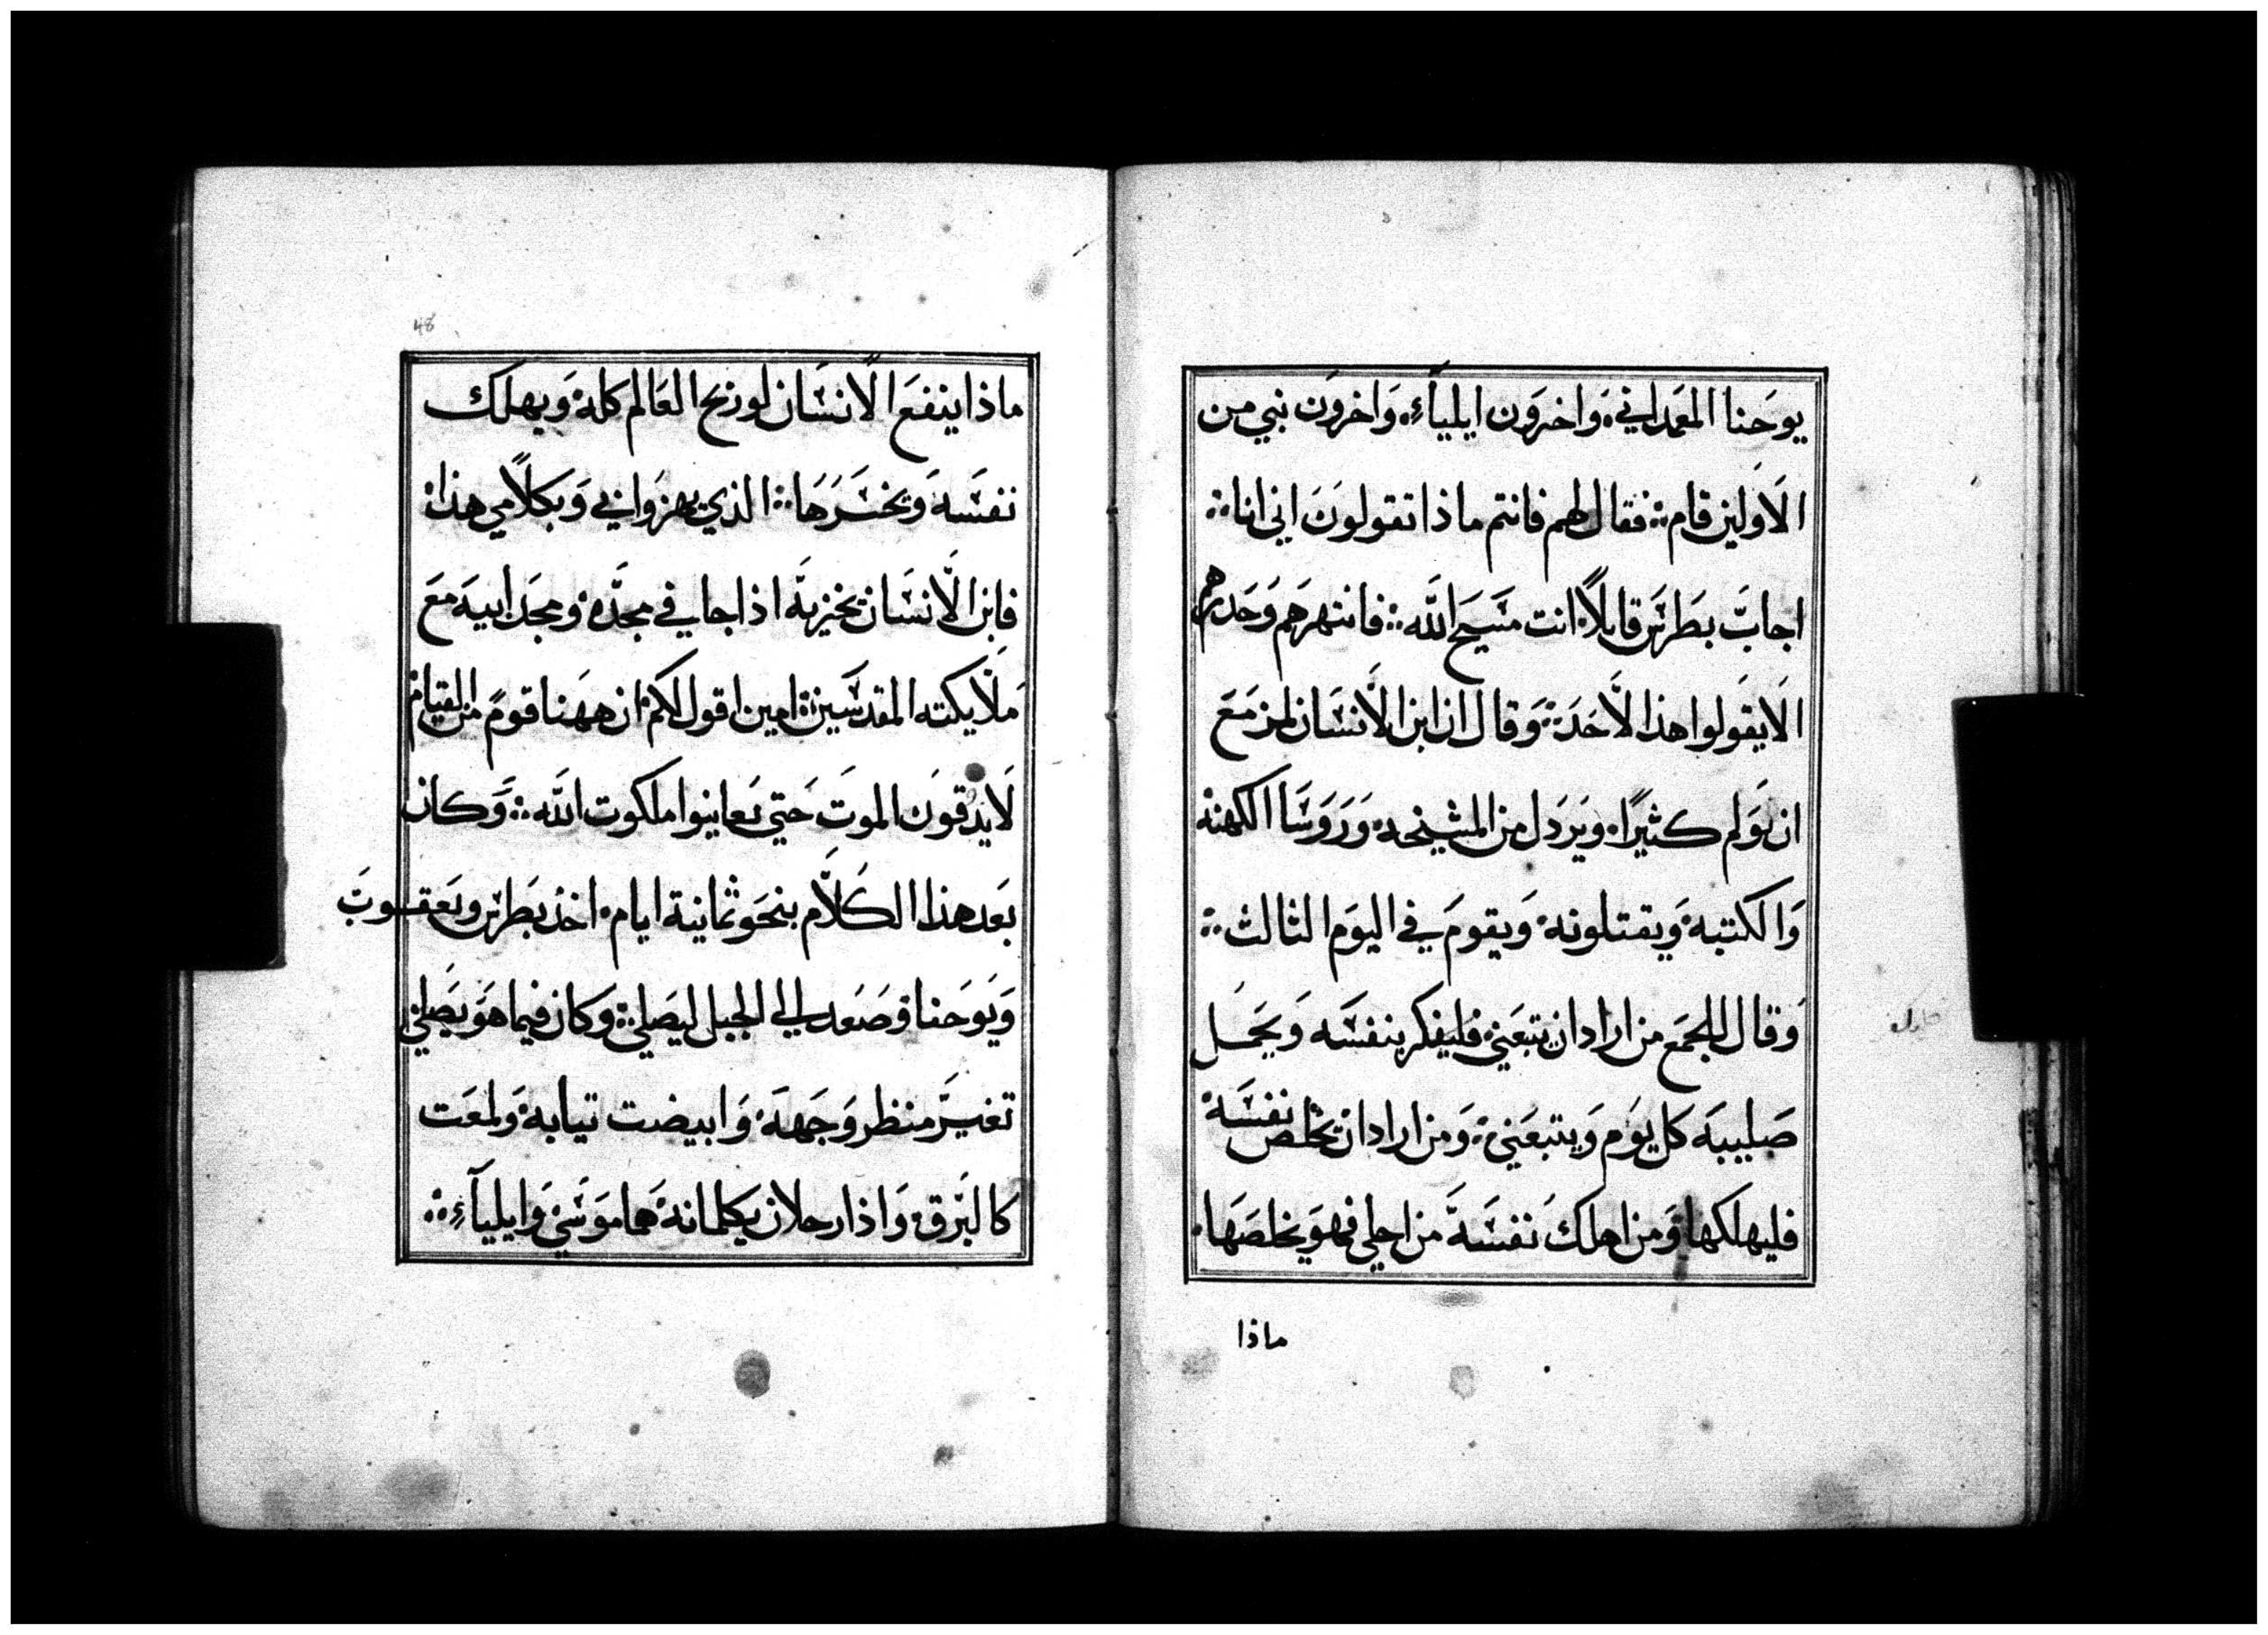 يوحنا المعمداني؛ واخرون ايلياء؛ واخرون نبي من
الاولين قام؛ فقال لهم فانتم ماذا تقولون اني انا؛
اجاب بطرس قايلاً؛ انت مسيح الله؛ فانتهرهم وحدرهم
الايقولوا هذا لاحد؛ وقال ان ابن الانسان لمزمع
ان يولم كثيرًا؛ ويردل من المشيخه؛ وروسا الكهنة
والكتبة؛ ويقتلونه؛ ويقوم في اليوم الثالث؛
وقال للجمع من اراد ان يتبعني؛ فليفكر بنفسه ويحمل
صليبه كل يوم ويتبعني؛ ومن اراد ان يخلص نفسه
فليهلكها؛ ومن اهلك نفسه من اجلي فهو يخلصها؛
ماذا
48
ماذا ينفع الانسان لو ربح العالم كله؛ ويهلك
نفسه ويخسرها؛ الذي يهزوا بي وبكلامي هذا؛
فابن الانسان يخزيه اذا جا في مجده؛ ومجد ابيه مع
ملايكته المقدسين؛ امين اقول لكم؛ ان ههنا قومً من القيام
لايدقون الموت حتي يعاينوا ملكوت الله؛ وكان
بعد هذا الكلام بنحو ثمانية ايام؛ اخذ بطرس ويعقوب
ويوحنا؛ وصعد الي الجبل ليصلي؛ وكان فيما هو يصلي؛
تغير منظر وجهه؛ وابيضت تيابه؛ ولمعت
كالبرق؛ واذا رجلان يكلمانه؛ هما موسي؛ وايلياء؛